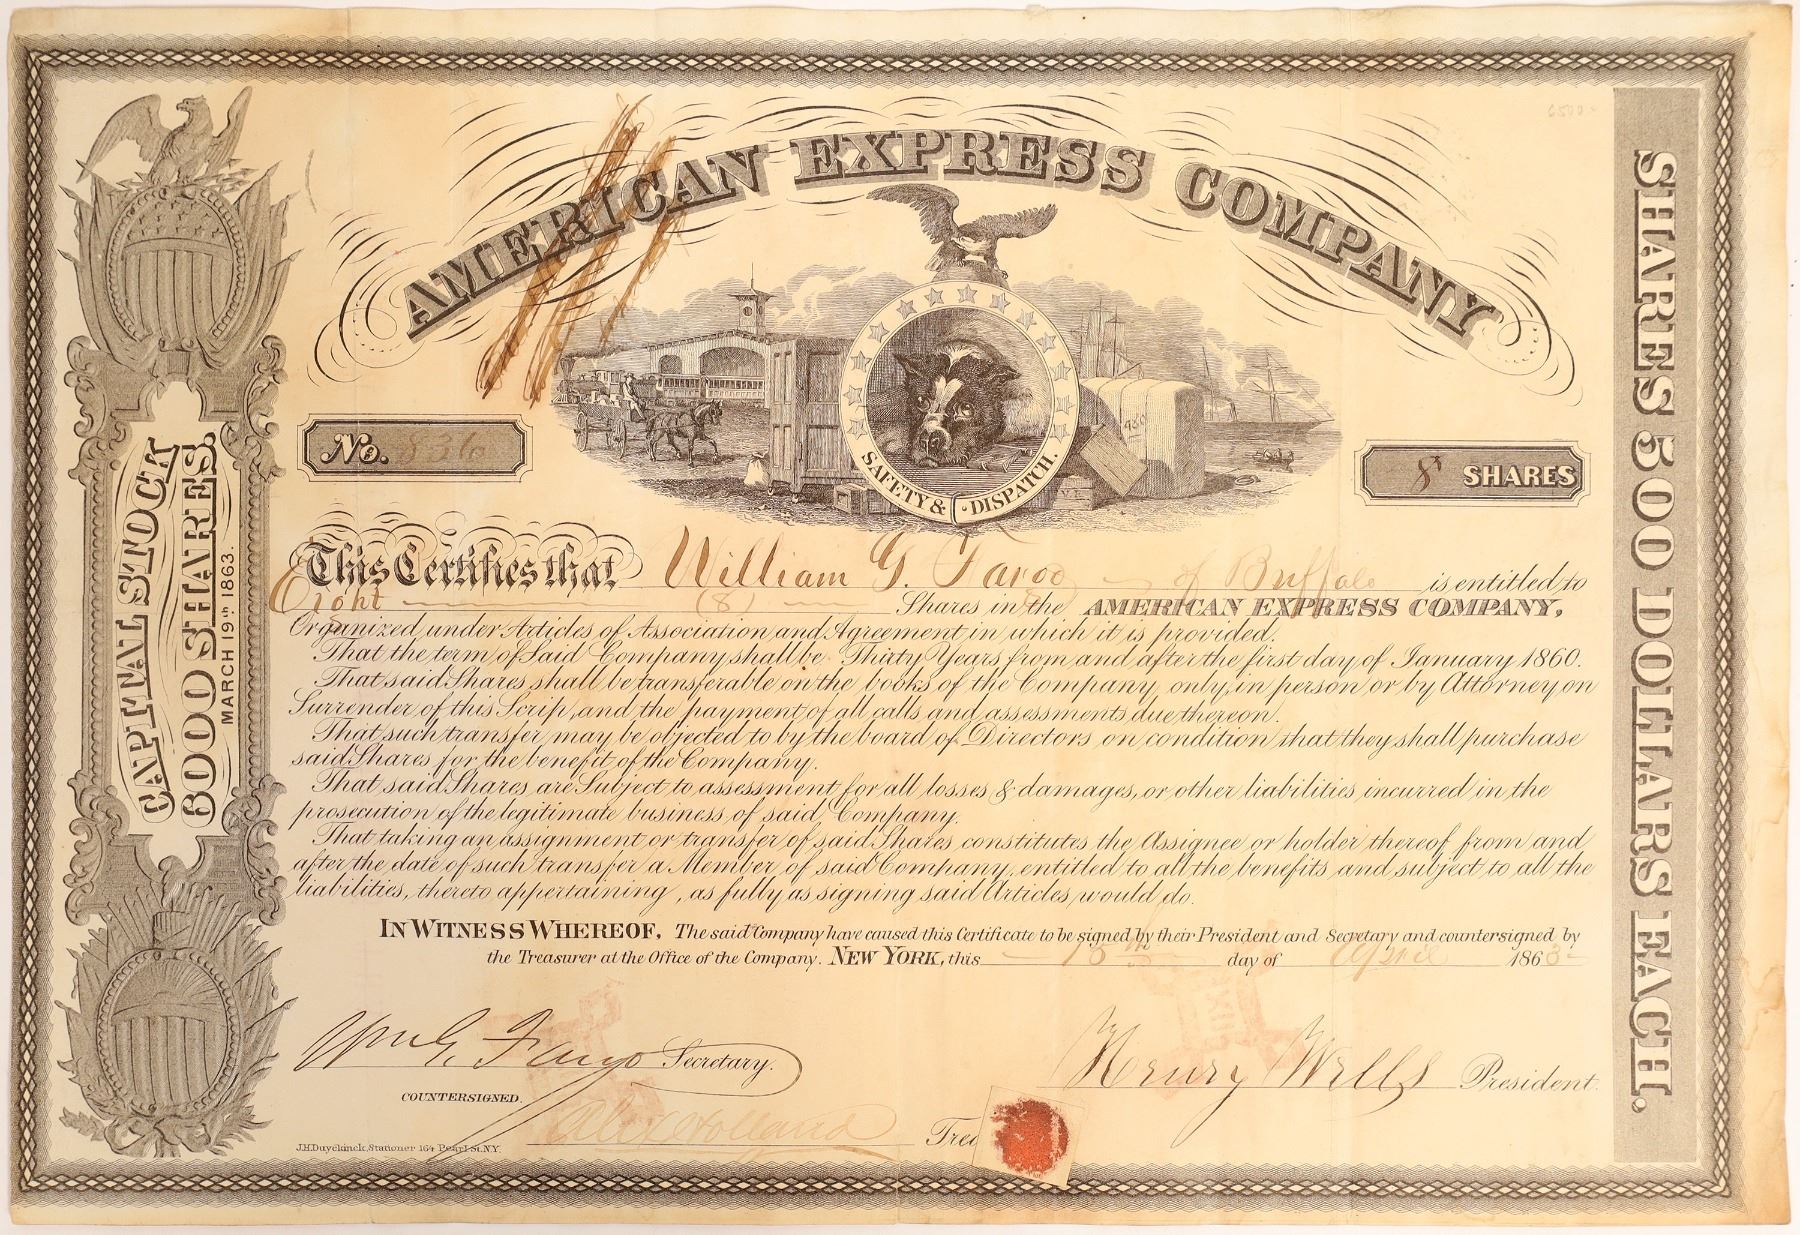 AMERICAN EXPRESS COMPANY
SAFETY & DISPATCH.
480
No. 836
8 SHARES
CAPITAL STOCK
6000 SHARES.
MARCH 19th 1863.
SHARES 500 DOLLARS EACH.
This Certifies that William G. Fargo of Buffalo is entitled to
Eight (8) Shares in the AMERICAN EXPRESS COMPANY,
Organized under Articles of Association and Agreement in which it is provided.
That the term of Said Company shall be Thirty Years from and after the first day of January 1860.
That said Shares shall be transferable on the books of the Company only, in person or by Attorney on
Surrender of this Scrip, and the payment of all calls and assessments due thereon.
That such transfer may be objected to by the board of Directors on condition that they shall purchase
said Shares for the benefit of the Company.
That said Shares are Subject to assessment for all losses & damages, or other liabilities incurred in the
prosecution of the legitimate business of said Company.
That taking an assignment or transfer of said Shares constitutes the Assignee or holder thereof from and
after the date of such transfer a Member of said Company, entitled to all the benefits and subject to all the
liabilities, thereto appertaining, as fully as signing said Articles would do.
IN WITNESS WHEREOF, The said Company have caused this Certificate to be signed by their President and Secretary and countersigned by
the Treasurer at the Office of the Company. NEW YORK, this day of April 1863
Wm G. Fargo Secretary.
Henry Wells President
COUNTERSIGNED.
Alex Holland Trea
J.H. Duyckinck, Stationer 164 Pearl St. N.Y.